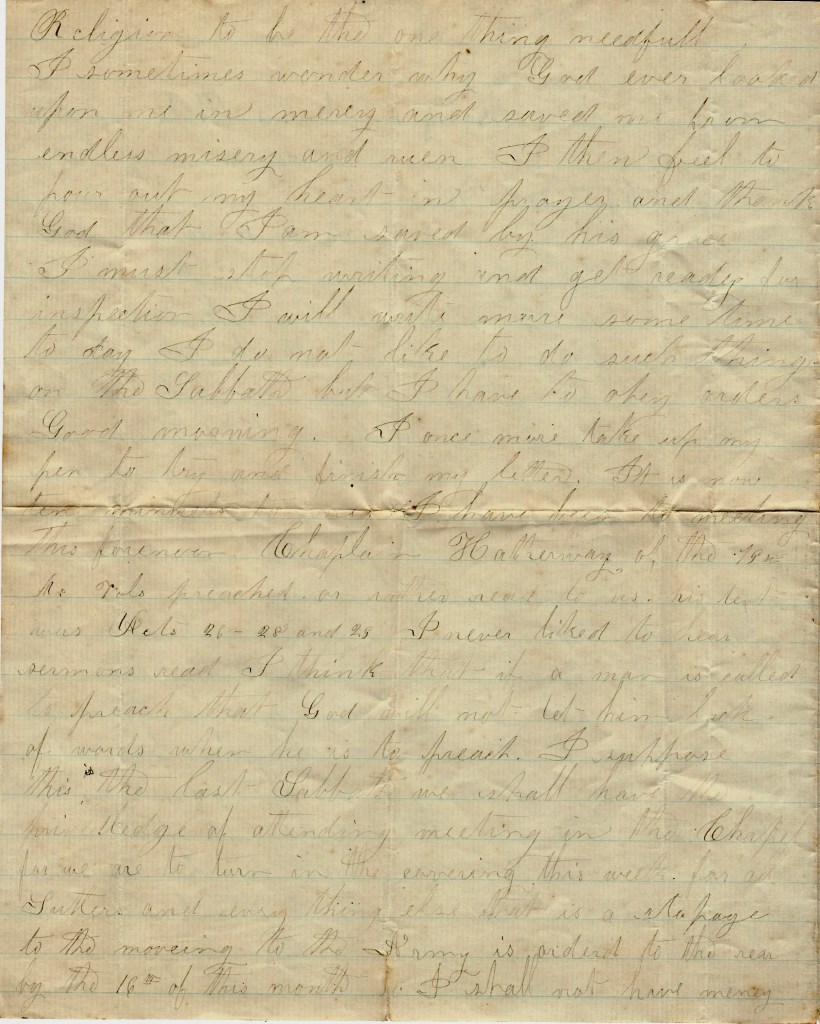 Religion to be the one thing needfull
I sometimes wonder why God ever looked
upon me in mercy and saved me from
endless misery and ruen I then feel to
pour out my heart in prayer and thank
God that I am saved by his grace
I must stop writing and get ready for
inspection I will write more some time
to day I do not like to do such things
on the Sabbath but I have to obey orders
Good morning. I once more take up my
pen to try and finish my letter. It is now
ten minutes to I have been to meeting
this forenoon Chaplain Hatherway of the 19th
Me Vols preached or rather read to us. his text
was Acts 26 - 28 and 29 I never liked to hear
sermons read I think that if a man is called
to preach that God will not let him lack
of words when he is to preach. I suppose
this is the last Sabbath we shall have the
priviledge of attending meeting in the Chapel
for we are to turn in the covering this week. for all
Sutters and every thing else that is a stopage
to the moveing to the Army is orderd to the rear
by the 16th of this month so I shall not have meny